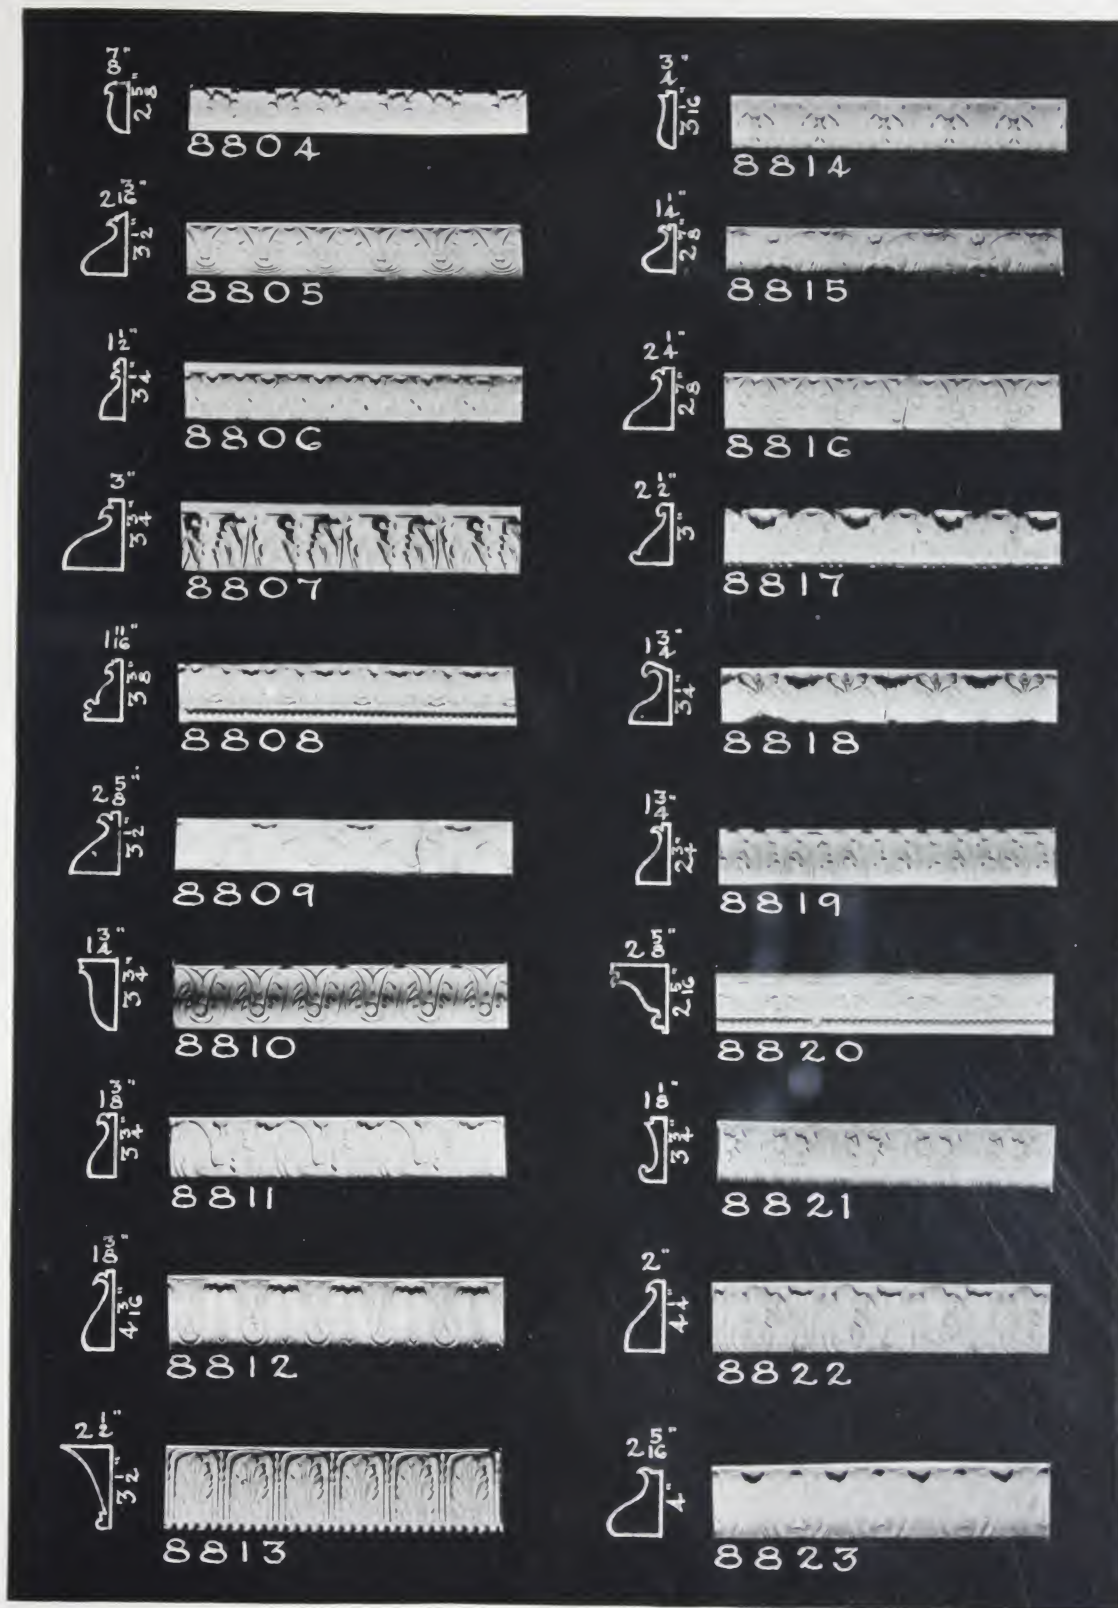 7/8"
2 5/8"
8804
2 3/16"
3 1/2"
8805
1 1/2"
3 1/4"
8806
3"
3 3/4"
8807
1 11/16"
3 3/8"
8808
2 5/8"
3 1/2"
8809
1 3/4"
3 3/4"
8810
1 3/8"
3 3/4"
8811
1 3/8"
4 3/16"
8812
2 1/2"
3 1/2"
8813
3/4"
3 1/16"
8814
1 1/4"
2 7/8"
8815
2 1/4"
2 7/8"
8816
2 1/2"
3"
8817
1 3/4"
3 1/4"
8818
1 3/4"
2 3/4"
8819
2 5/8"
2 5/16"
8820
1 1/8"
3 3/4"
8821
2"
4 1/4"
8822
2 5/16"
4"
8823